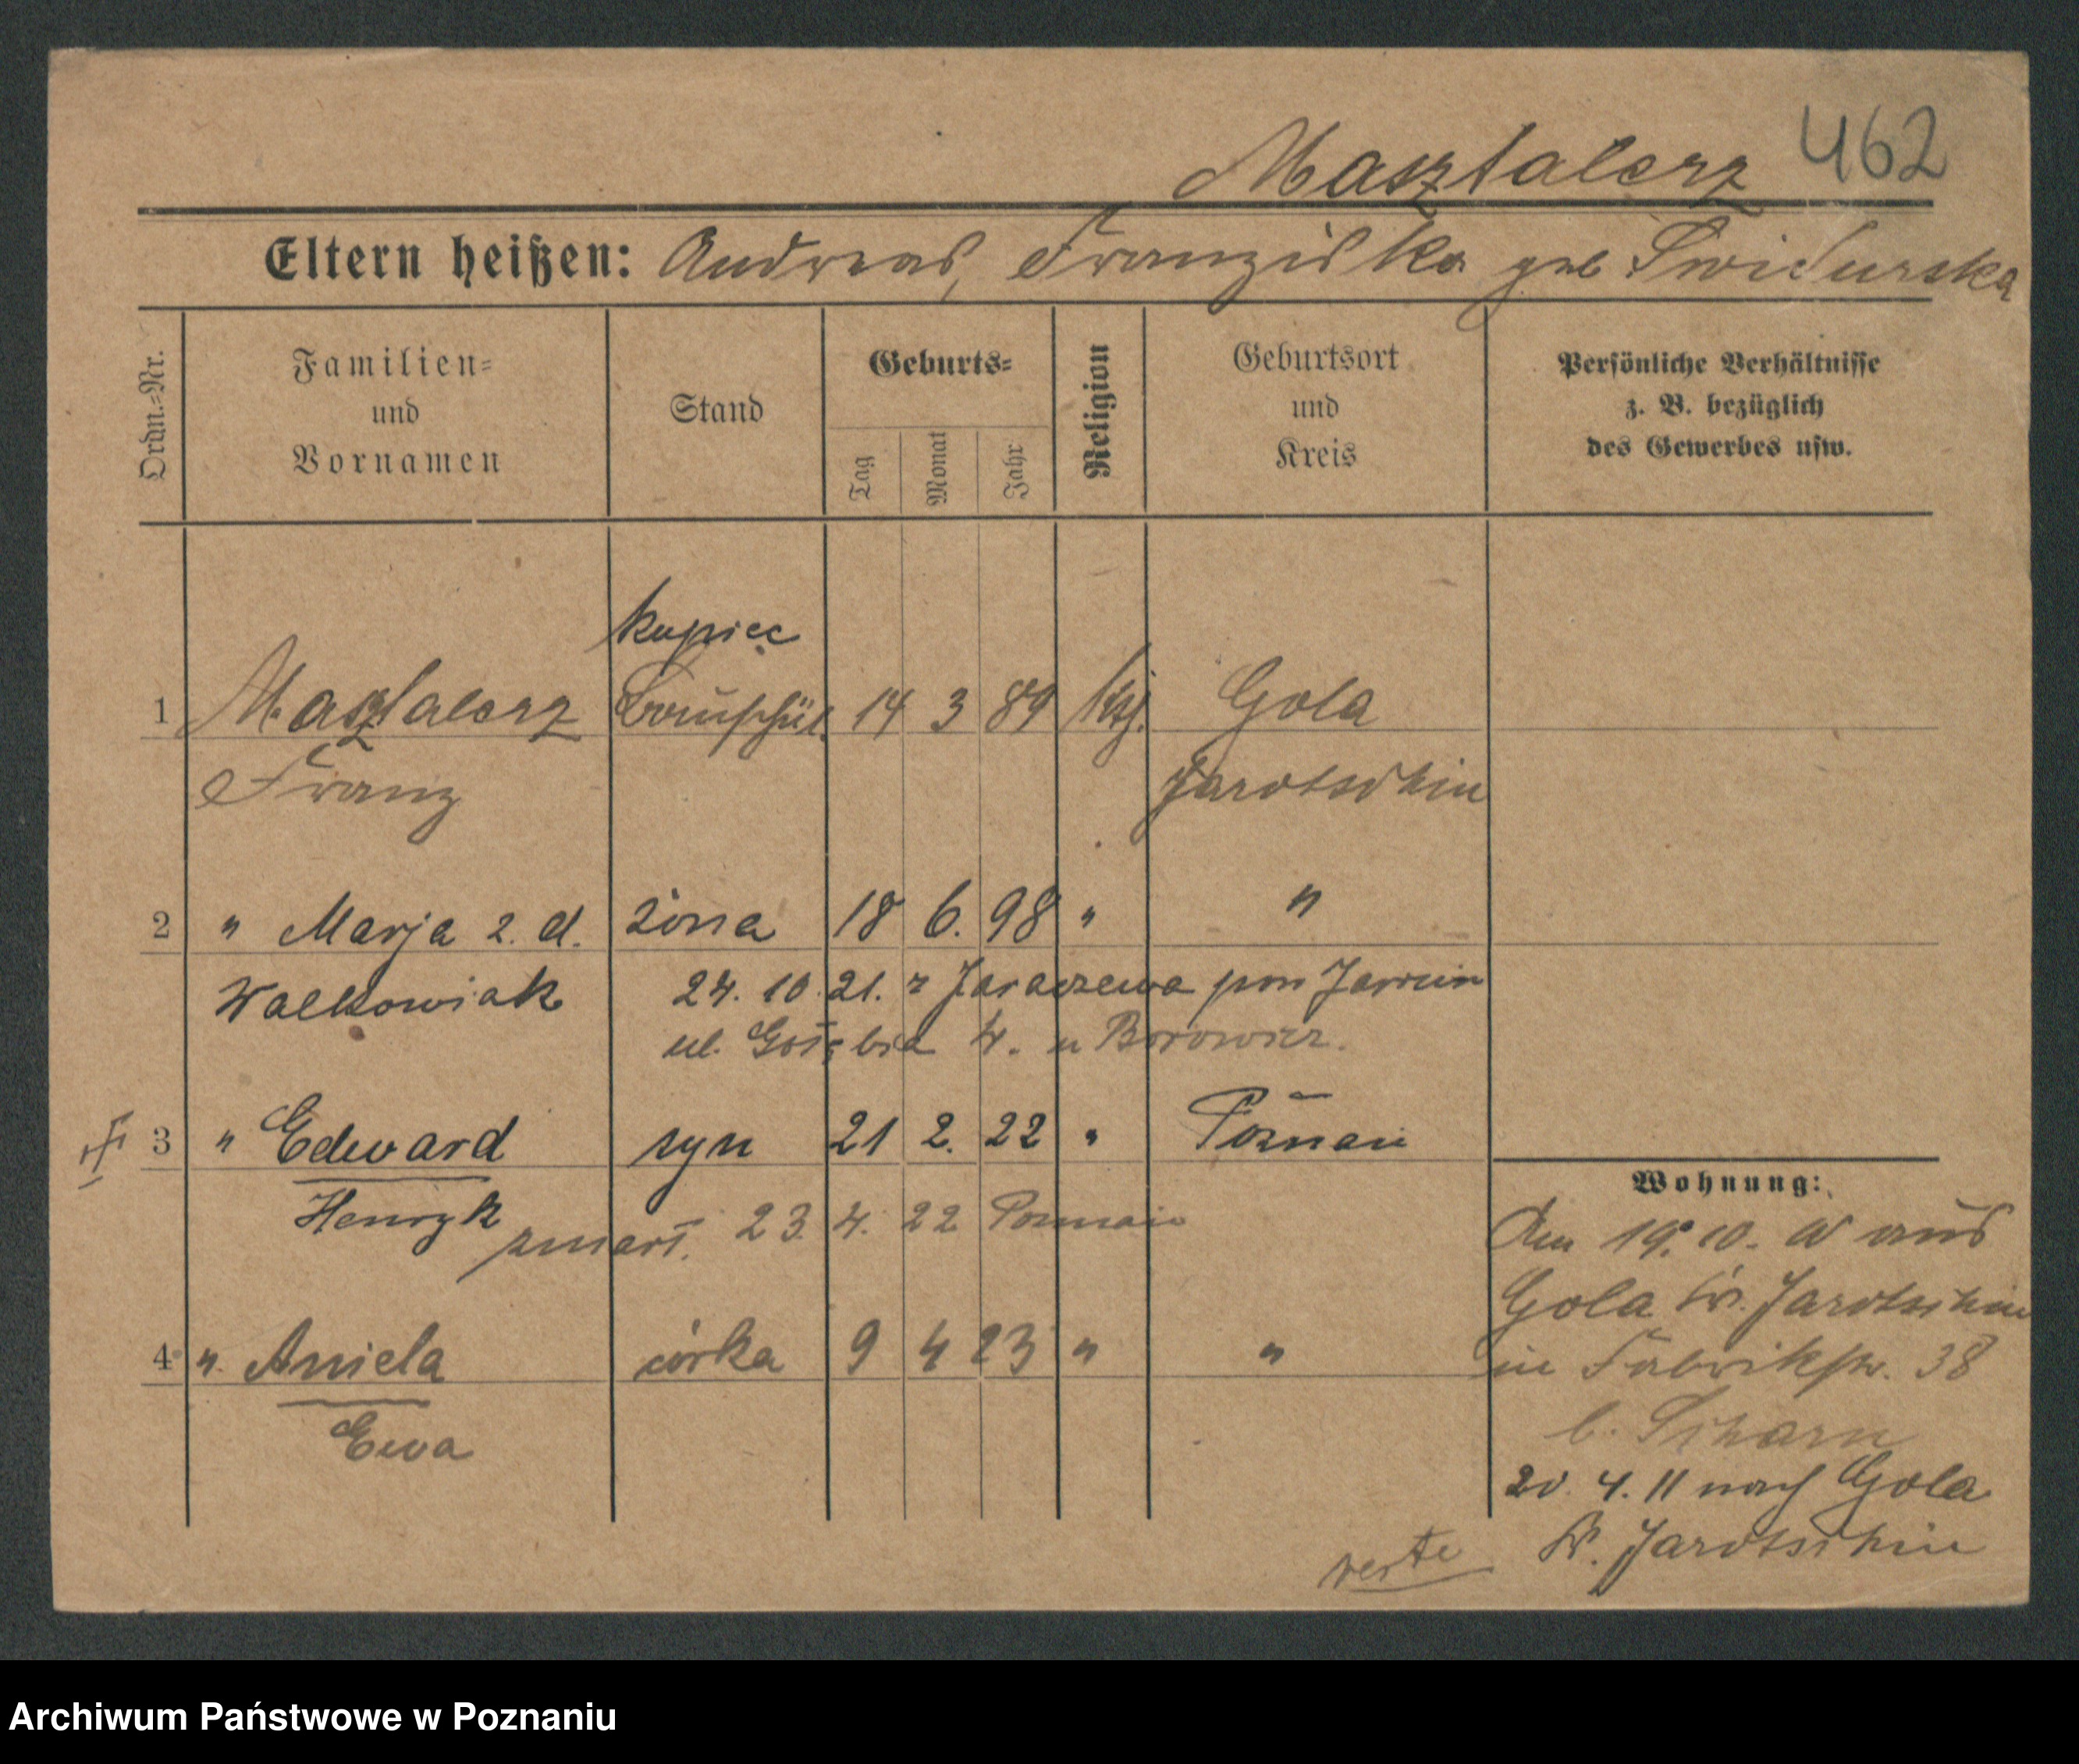 Masztalerz 462
Eltern heißen: Andreas, Franziska geb Swidurska
Ordn.-Nr.
Familien-
und
Vornamen
Stand
Geburts-
Tag
Monat
Jahr
Religion
Geburtsort
und
Kreis
Persönliche Verhältnisse
z. B. bezüglich
des Gewerbes usw.
kupiec
1 Masztalerz 14 3 89 kth. Gola
Franz Jarotschin
2 " Marja z. d. żona 18 6. 98 " "
Walkowiak 24. 10. 21. z Jaraczewa pow Jarocin
ul. Gołębia 4. u Borowicz.
3 " Edward syn 21 2. 22 " Poznań
Henryk zmarł. 23. 4. 22 Poznań
4 " Aniela córka 9 4 23 " "
Ewa
Wohnung:
Am 19. 10. aus
Gola Kr. Jarotschin
in Fabrikstr. 38
b.
20. 4. 11 nach Gola
Kr. Jarotschin
verte
Archiwum Państwowe w Poznaniu